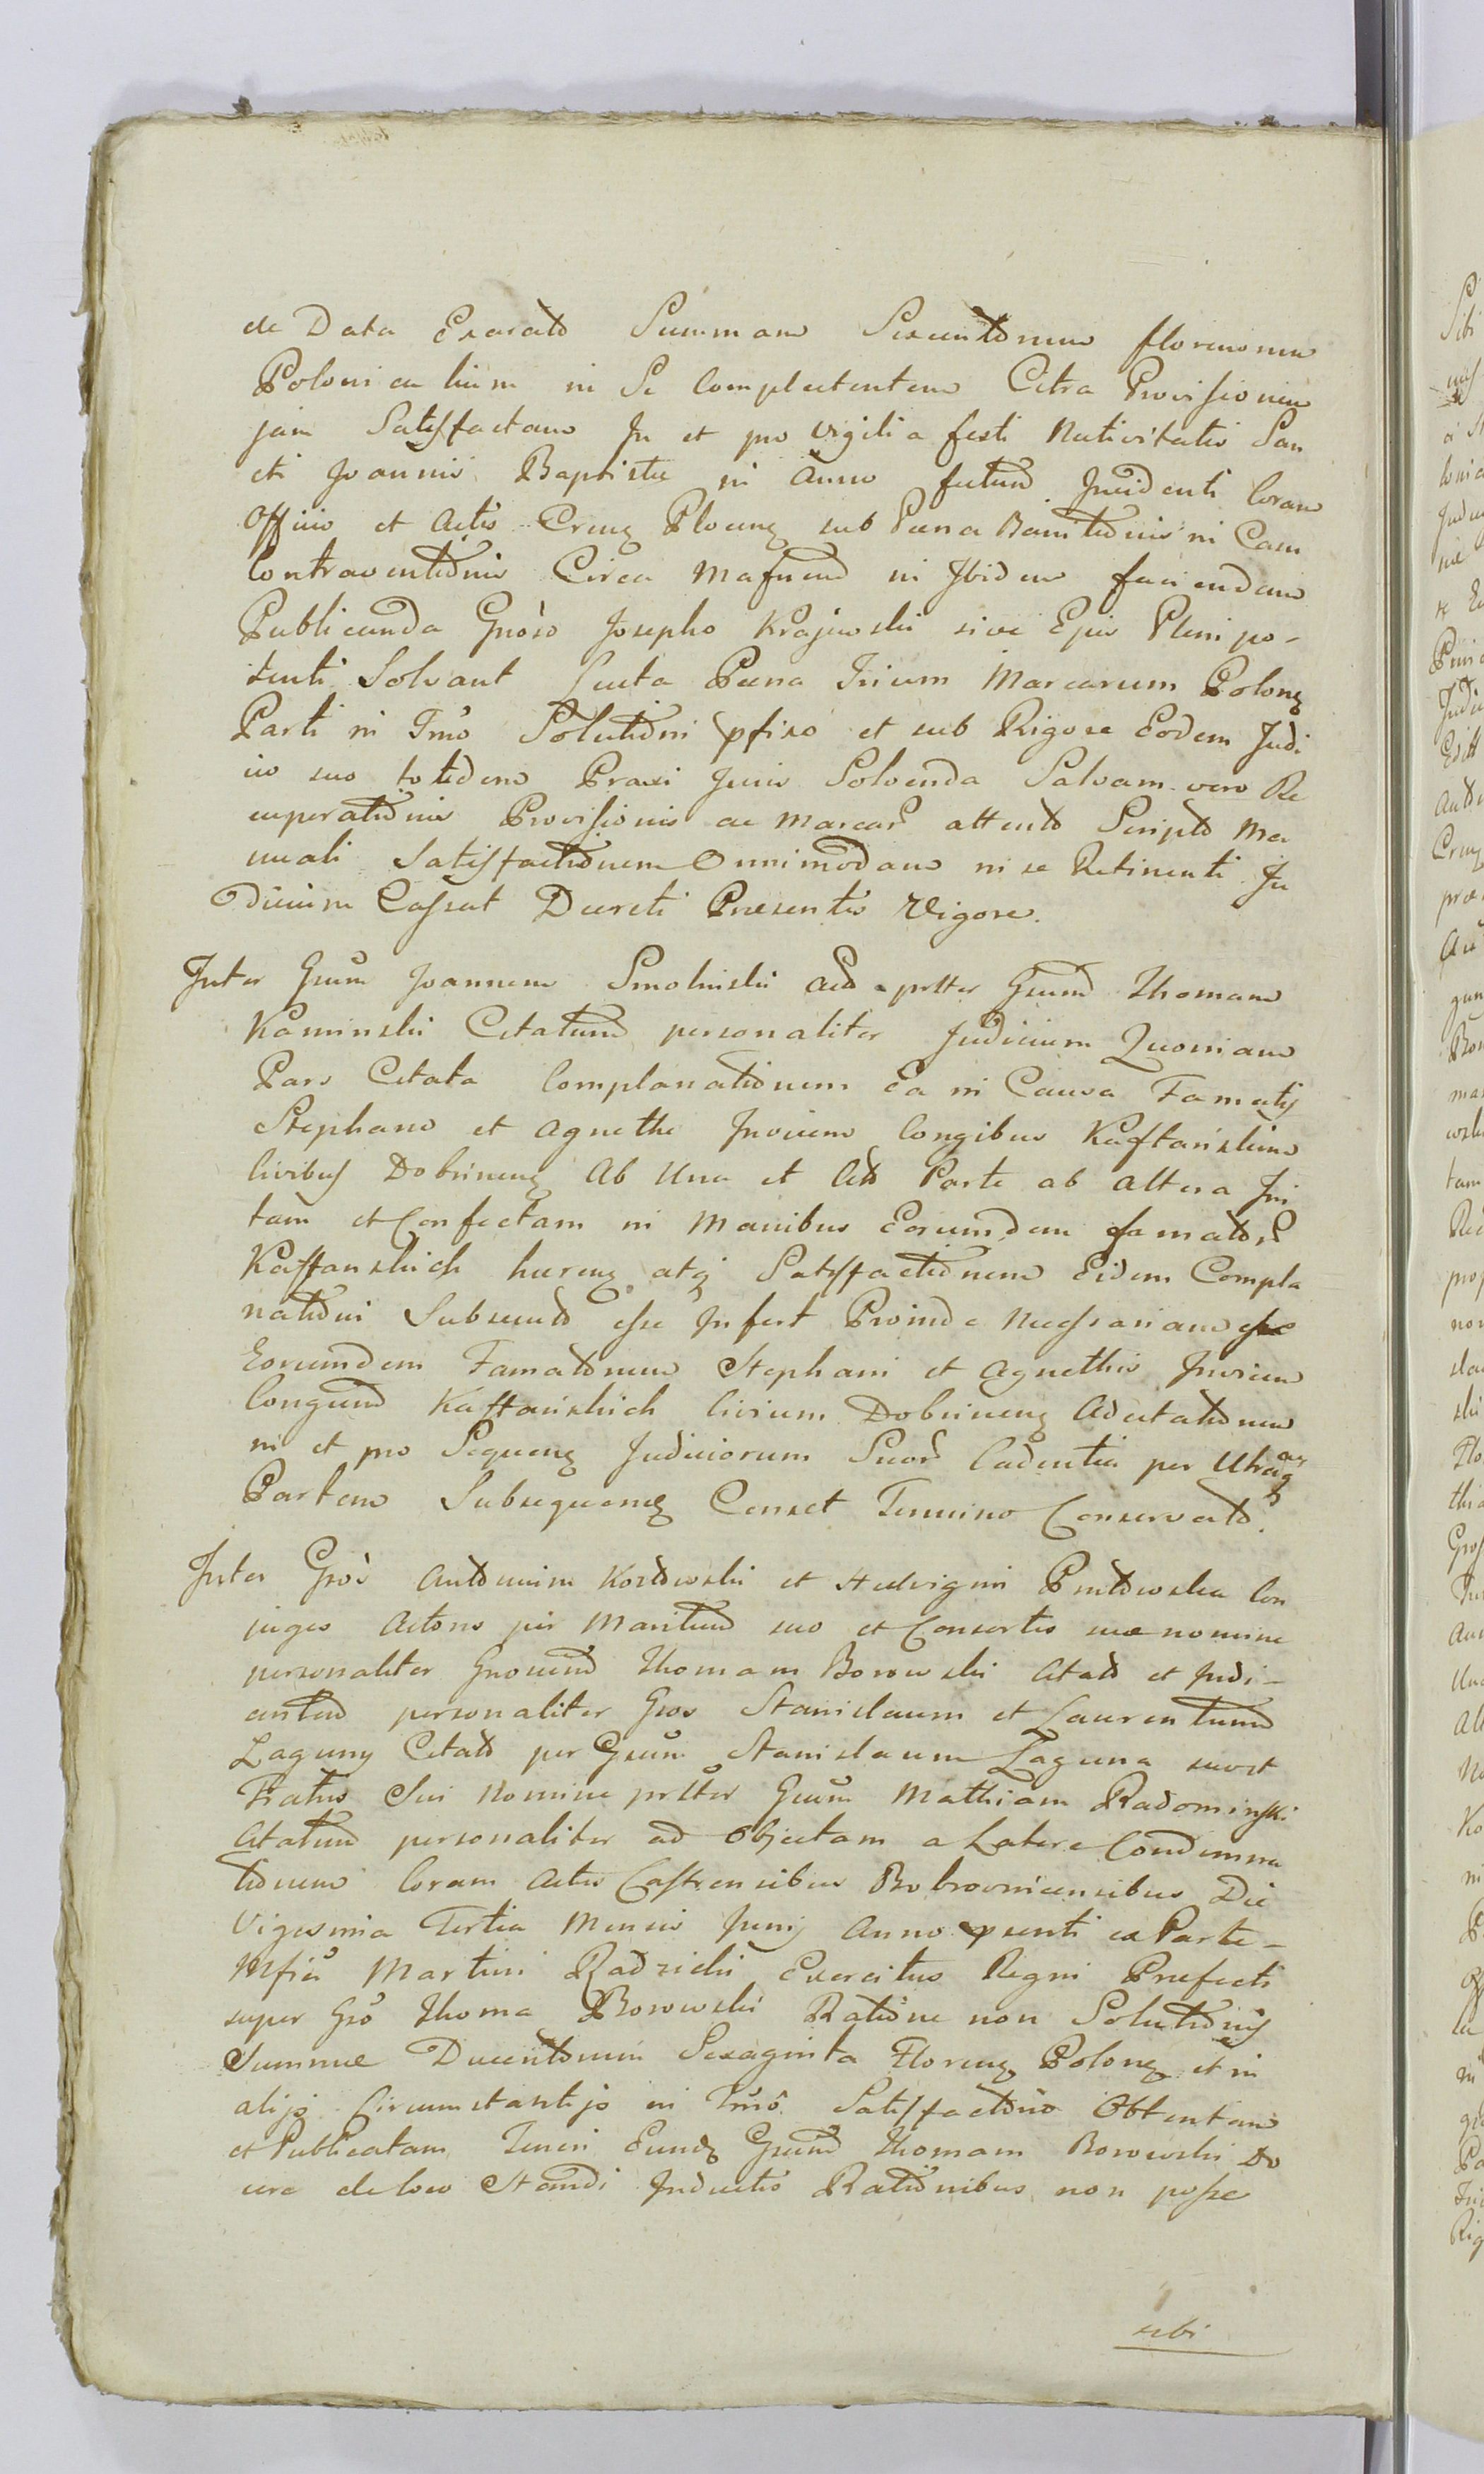 de Data Exarato Summam Sexcentorum florenorum
Polonicalium in Se Complectentem Citra Provisionem
jam Satisfactam In et pro Vigilia festi Nativitatis San
cti Joannis Baptistæ in Anno futuro Incidenti Coram
Officio et Actis Crueg Ploceng sub Pæna Banitionis in Casu
Contraventionis Circa in Ibidem faciendam
Publicanda Gnoso Josepho Krajewski sive Ejus Plenipo-
tenti Solvant Juxta Pæna Trium Marcarum Polong
Parti in Tmo Solutioni pfixo et sub Rigore Eodem Judi
cio suo totidem Praevi Juris Solvenda Salvam vero Re
cuperationis Provisionis ac Marcar attento Scripto Ma
nuali Satisfactionem Omnimodam in se Retinenti Ju
dicium Cassat Decreti Præsentis Vigore.
Inter Gsum Joannem Smolinski Act prtter Gsum Thomam
Kaminski Citatum personaliter Judicium Quoniam
Pars Citata Complanationem Ea in Causa Famatis
Stephano et Agnethe Invicem Congibus Kaftanskim
Civibus Dobrineng Ab Una et Act Parte ab altera Ini
tam et Confectam in Manibus Eorumdem famator
Kaftanskich atq Satisfactionem Eidem Compla
nationi Subsecuto esse Infert Proinde Necessariam esse
Eorumdem Famatorum Stephani et Agnethis Invicem
Congum Kaftanskich Civium Dobrineng Adcitationem
in et pro Sequeng Judiciorum Suor Cadentia per Utramq
Partem Subsequeng Censet Termino Conservato.
Inter Gsos Antonium Kozlowski et Hedvigim Con
juges Actores per Maritum suo et Consortis suæ nomine
personaliter Gnosum Thomam Borowski Citato et Indi-
cantem personaliter Gsos Stanislaum et Laurentium
Laguny Citato per Gsum Stanislaum Laguna suo et
Fratris Sui Nomine prtter Gsum Mathiam Radominski
Citatum personaliter ad Objectam a Latere Condemna
tionem Coram Actis Castrensibus Bobrovnicensibus Die
Vigesima Tertia Mensis Junij Anno psenti ex Parte-
Mfici Martini Radzicki Exercitus Regni Præfecti
super Gso Thoma Borowski Ratione non Solutionis
Summæ Ducentorum Sexaginta Floreng Polong et in
alijs Circumstantijs in Tmo Satisfactionis Obtentam
et Publicatam Teneri Eundg Gsum Thomam Borowski Do
cere de loco Standi Inductis Rationibus non posse
sibi